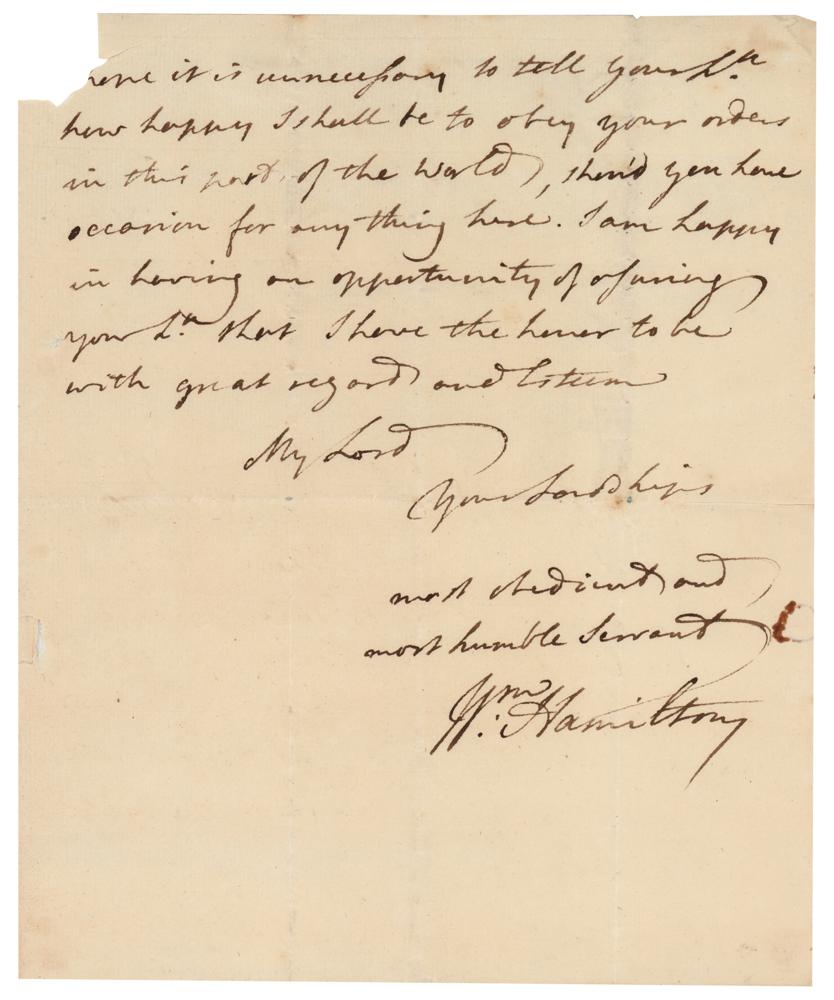 hope it is unnecessary to tell your Lp.
how happy I shall be to obey your orders
in this part of the World, shou'd you have
occasion for any thing here. I am happy
in having an opportunity of assuring
your Lp. that I have the honor to be
with great regard and Esteem
My Lord
Your Lordships
most obedient and
most humble Servant
Wm: Hamilton